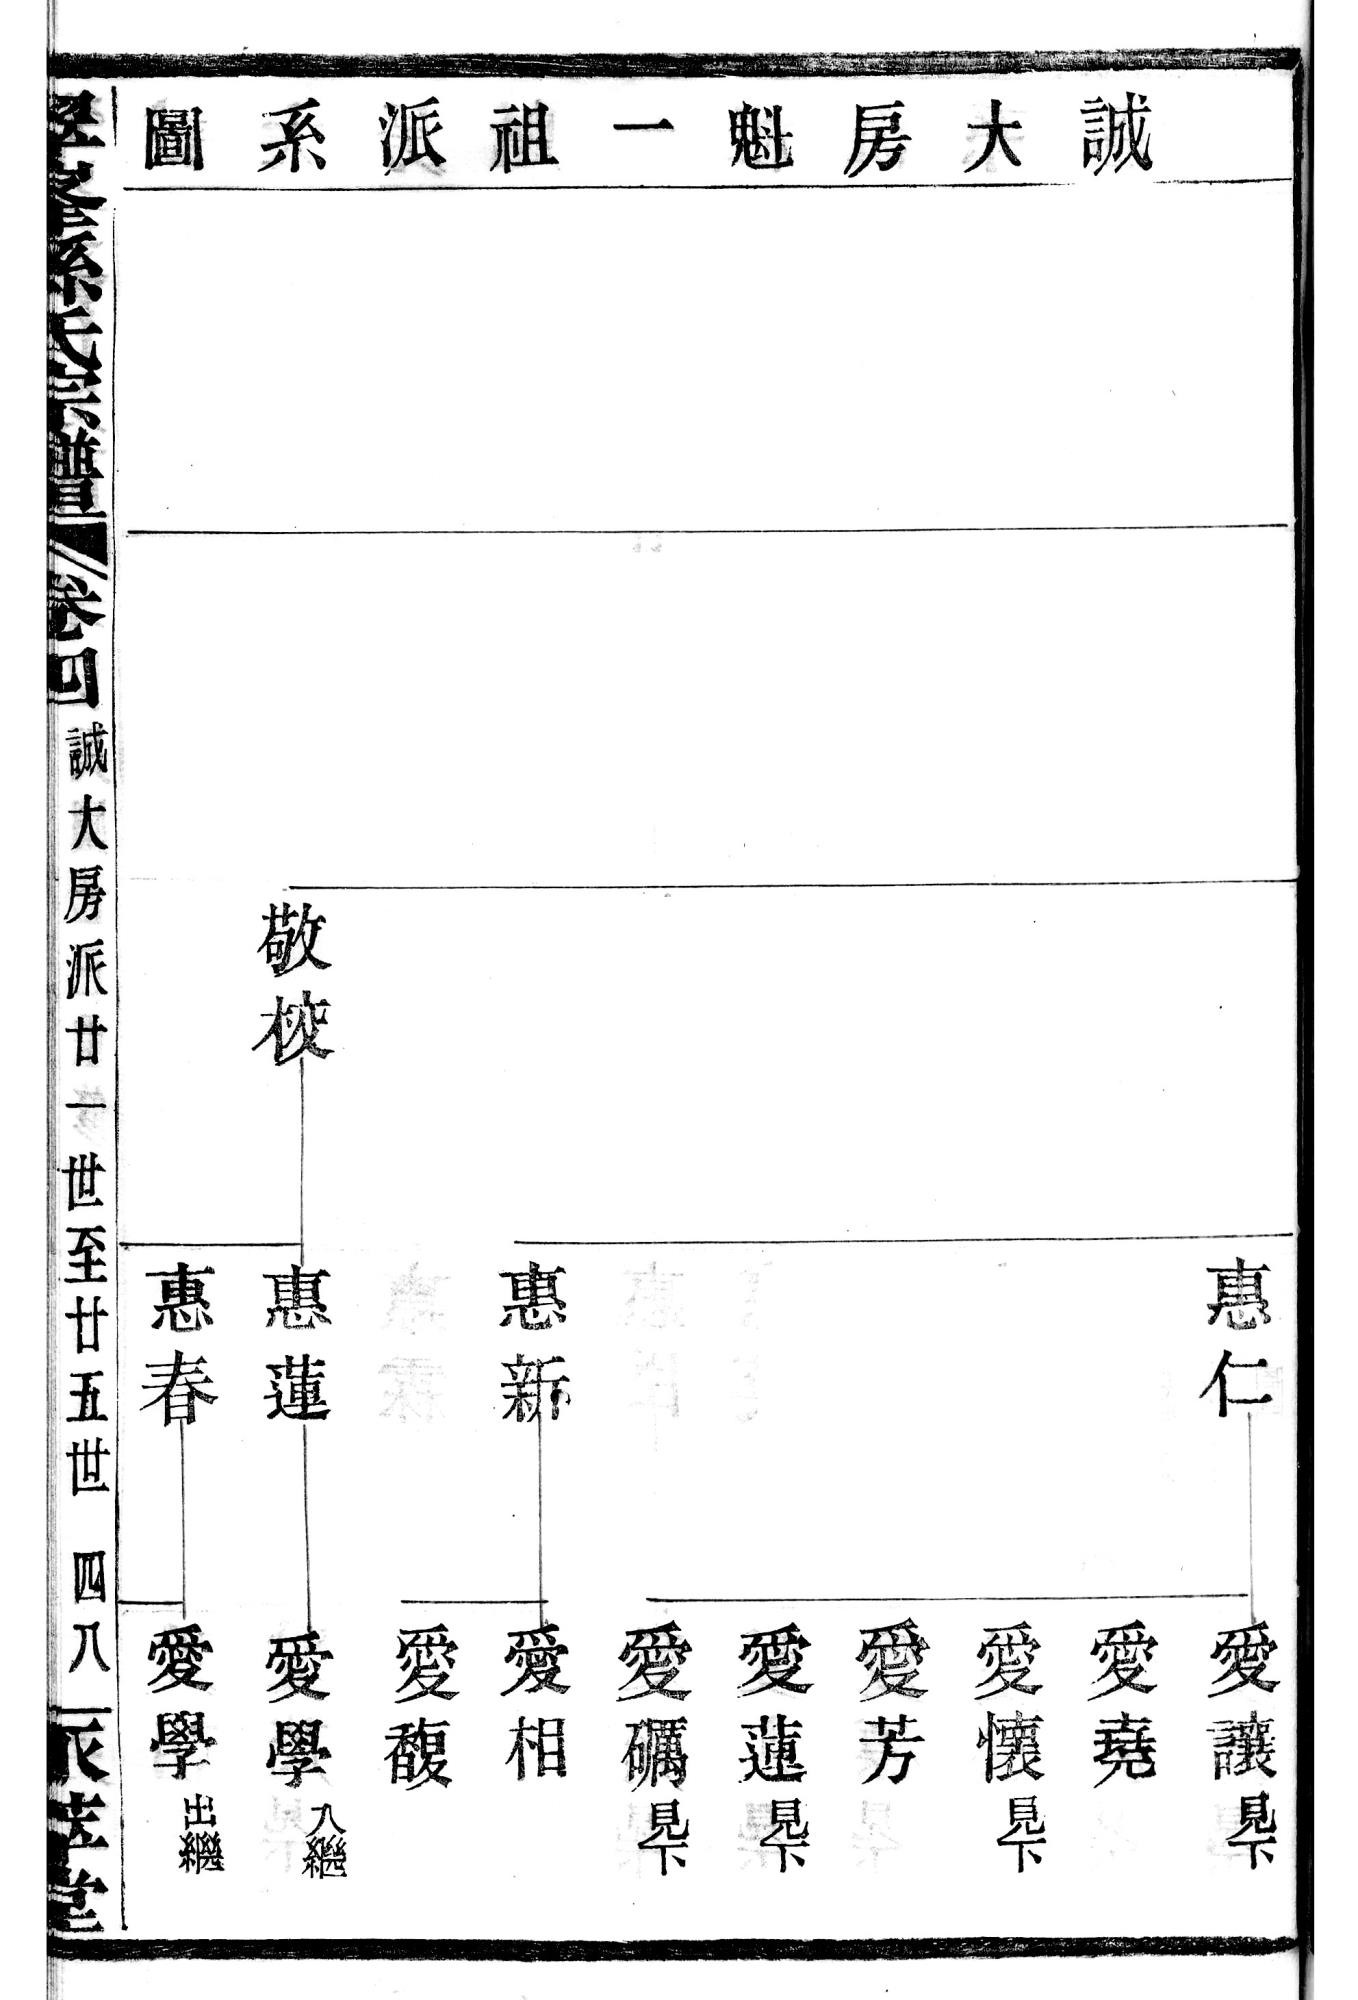 誠大房魁一祖派系圖
敬校
惠仁
惠新
惠蓮
惠春
愛讓見下
愛堯
愛懷見下
愛芳
愛蓮見下
愛礪見下
愛相
愛馥
愛學入繼
愛學出繼
孫氏宗譜
卷四
誠大房派廿一世至廿五世
四八
堂